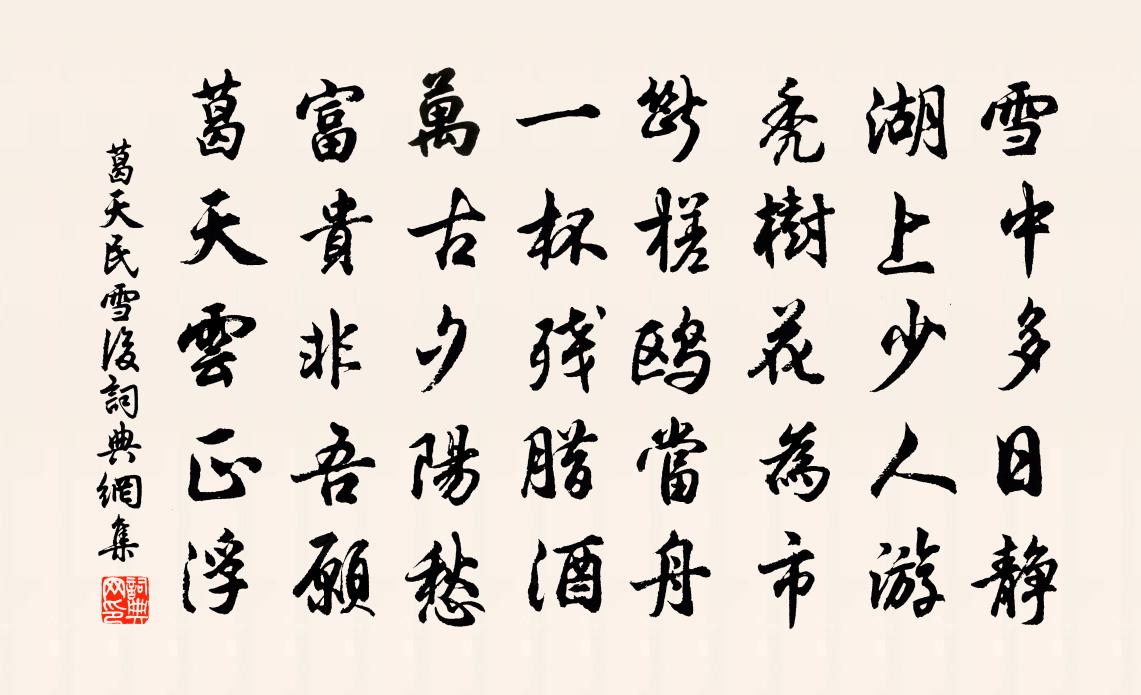 雪中多日静
湖上少人游
禿樹花為市
斷槎鸥當舟
一杯残腊酒
萬古夕陽愁
富貴非吾願
葛天雲正浮
葛天民雪後詞典網集
詞典网印